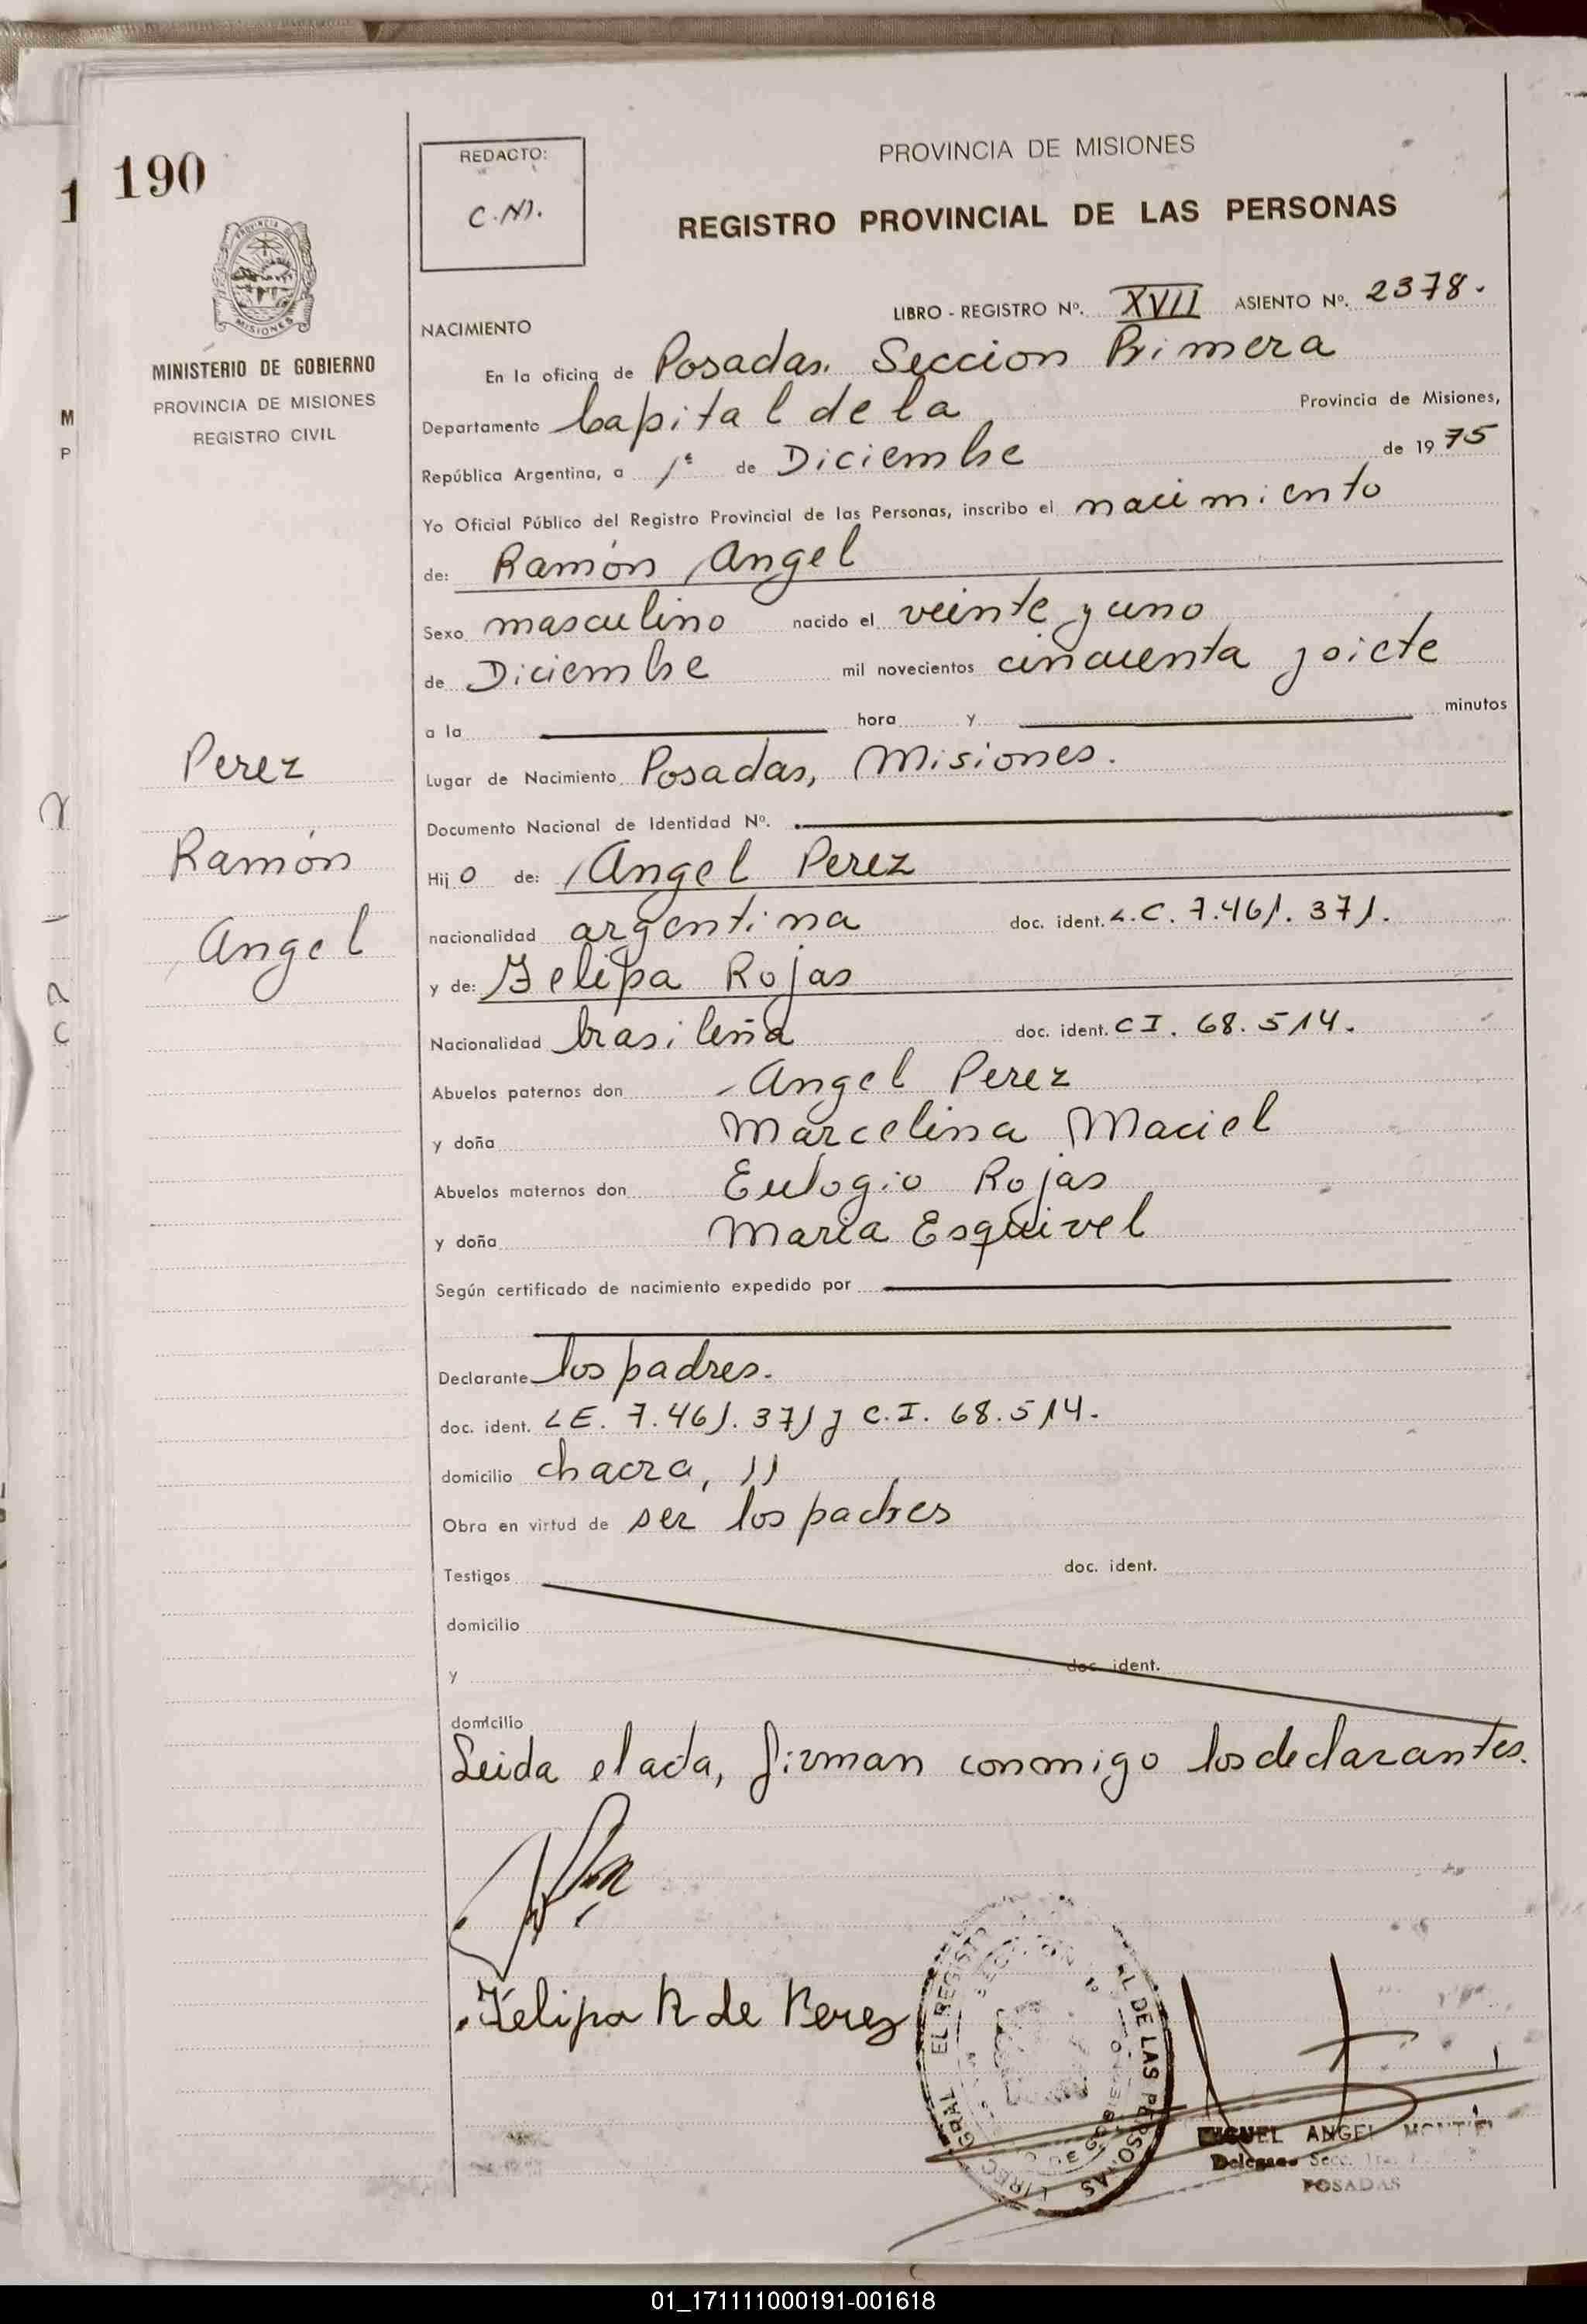 190
1
REDACTO:
C.M.
PROVINCIA DE MISIONES
REGISTRO PROVINCIAL DE LAS PERSONAS
PROVINCIA DE
MISIONES
MINISTERIO DE GOBIERNO
PROVINCIA DE MISIONES
REGISTRO CIVIL
M
P
NACIMIENTO LIBRO - REGISTRO Nº. XVII ASIENTO Nº. 2378.
En la oficina de Posadas. Seccion Primera
Departamento Capital de la Provincia de Misiones,
República Argentina, a 1º de Diciembre de 1975
Yo Oficial Público del Registro Provincial de las Personas, inscribo el nacimiento
de: Ramón Angel
Sexo masculino nacido el veinte y uno
de Diciembre mil novecientos cincuenta y siete
a la hora y minutos
Lugar de Nacimiento Posadas, Misiones.
Documento Nacional de Identidad Nº.
Perez
Ramón
Angel
Hijo de: Angel Perez
nacionalidad argentina doc. ident. L.C. 7.461.371.
y de: Felipa Rojas
Nacionalidad brasileña doc. ident. CI. 68.514.
Abuelos paternos don Angel Perez
y doña Marcelina Maciel
Abuelos maternos don Eulogio Rojas
y doña Maria Esquivel
Según certificado de nacimiento expedido por
Declarante los padres.
doc. ident. LE. 7.461.371 y C.I. 68.514.
domicilio chacra, 11
Obra en virtud de ser los padres
Testigos doc. ident.
domicilio
y doc. ident.
domicilio
Leida el acta, firman conmigo los declarantes.
Felipa R de Perez
GRAL EL REGISTR AL DE LAS PERSONAS
DE GOBIERNO
MIGUEL ANGEL MONTIEL
Delegado Secc.
POSADAS
01_171111000191-001618